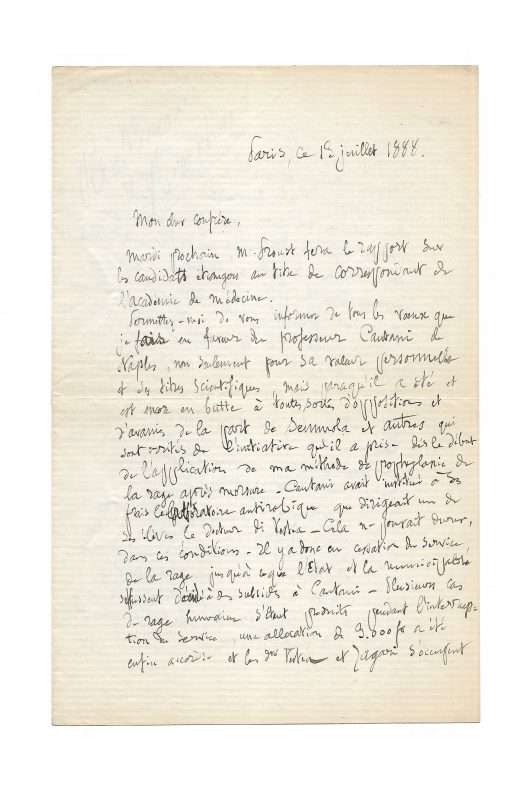 Paris, ce 12 juillet 1888.
Mon cher confrère,
Mardi prochain, M. Proust fera le rapport sur
les candidats étrangers au titre de correspondant de
l'académie de médecine.
Permettez-moi de vous informer de tous les vœux que
je fais en faveur du professeur Cantani de
Naples, non seulement pour sa valeur personnelle
et ses titres scientifiques, mais parcequ'il a été et
est encore en butte à toutes sortes d'oppositions et
d'avanies de la part de Semmola et autres qui
sont irrités de l'initiative qu'il a prise dès le début
de l'application de ma méthode de prophylaxie de
la rage après morsure - Cantani avait institué à ses
frais le laboratoire antirabique que dirigeait un de
ses élèves le docteur di Vestea - Cela ne pouvait durer,
dans ces conditions - Il y a donc eu cessation du service,
de la rage, jusqu'à ce que l'Etat et la municipalité
eussent des subsides à Cantani - Plusieurs cas
de rage humaine s'étant produits pendant l'interrup-
tion du service, une allocation de 9.000 fr a été
enfin accordée et les drs Vestea et Zagari s'occupent